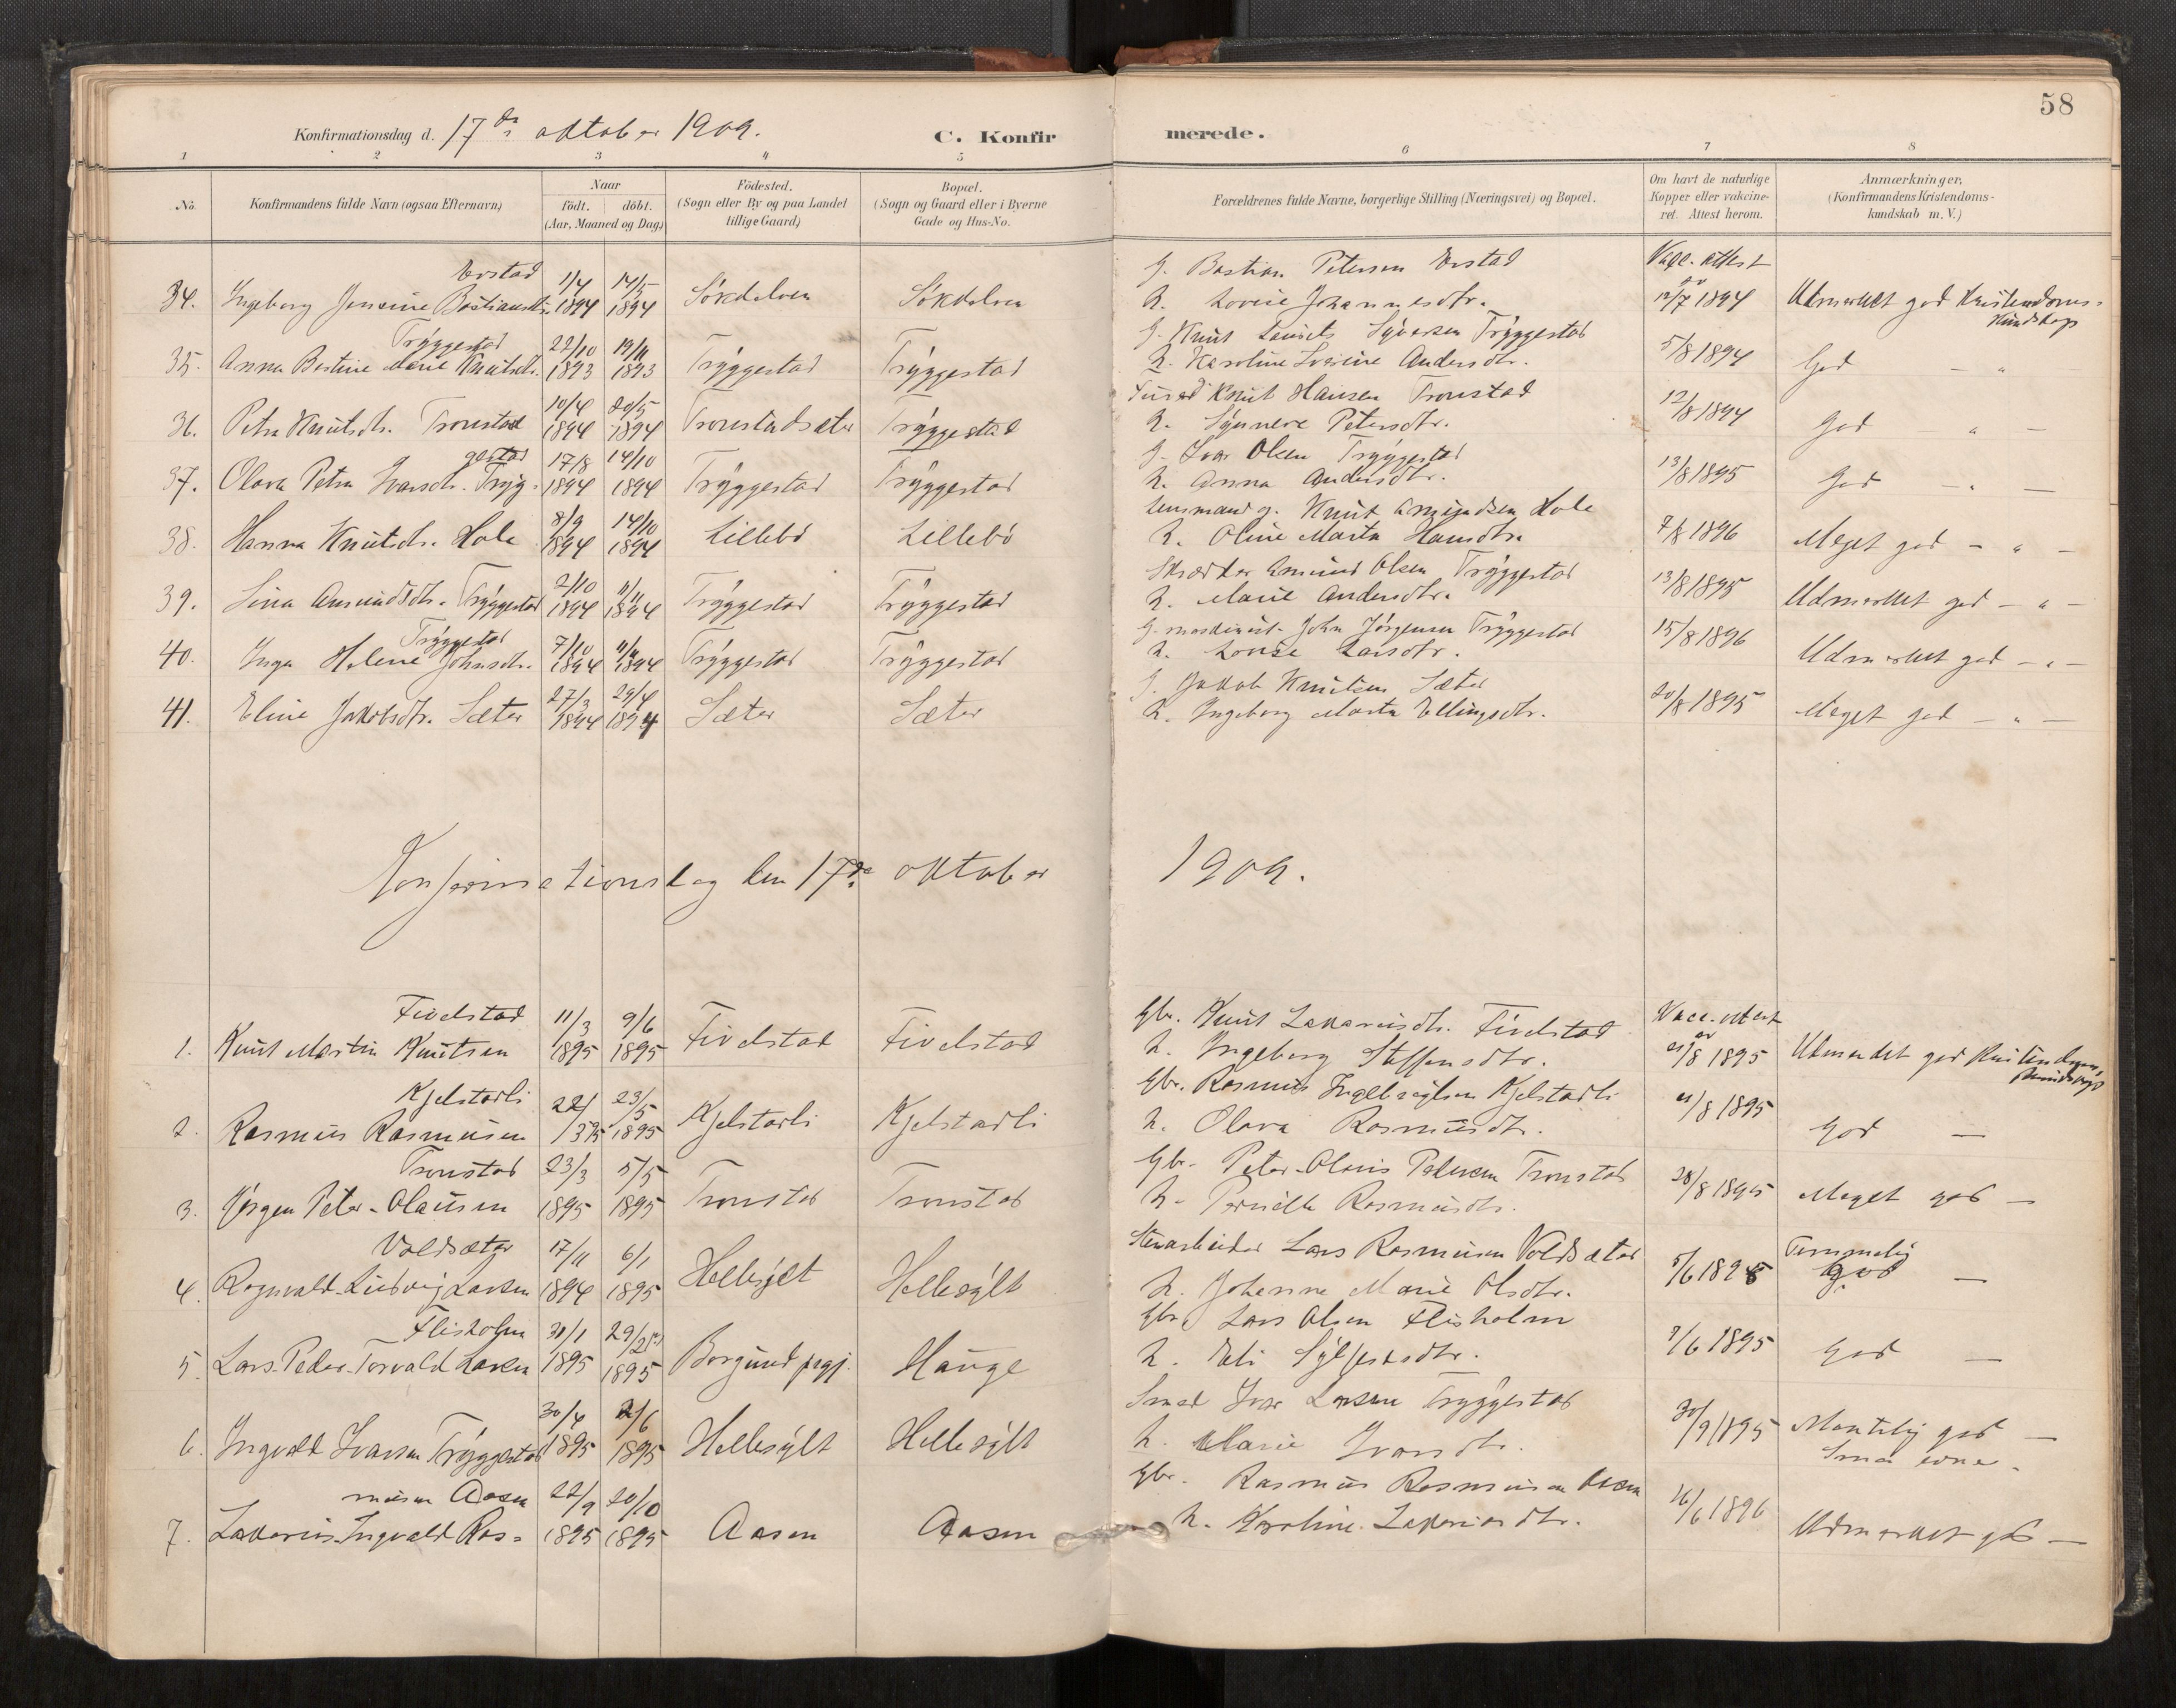 58
Konfirmationsdag d. 17de oktober 1909.
C. Konfirmerede.
1 2 3 4 5 6 7 8
No.
Konfirmandens fulde Navn (ogsaa Efternavn)
Naar
Födt. döbt.
(Aar, Maaned og Dag)
Födested.
(Sogn eller By og paa Landet
tillige Gaard)
Bopæl.
(Sogn og Gaard eller i Byerne
Gade og Hus-No.
Forældrenes fulde Navne, borgerlige Stilling (Næringsvei) og Bopæl.
Om havt de naturlige
Kopper eller vakcine-
ret. Attest herom.
Anmærkninger,
(Konfirmandens Kristendoms-
kundskab m. V.)
Erstad 1/4 14/5 G. Bastian Petersen Erstad Vacc. attest
34. Ingeborg Jensine Bastiansdtr. 1894 1894 Sökdalven Sökdalven h. Lovise Johannesdtr. av 12/7 1894 Udmerket god Kristendoms-
kundskap
Tryggestad 22/10 19/11 G. Knut Lausets Syversen Tryggestad
35. Anna Bastine Marie Knutsdtr. 1893 1893 Tryggestad Tryggestad h. Karoline Andersdtr. 5/8 1894 God - " -
10/4 20/5 Knut Hansen Tronstad
36. Petra Knutsdtr. Tronstad 1894 1894 Tronstadsæter Tryggestad h. Synneve Petersdtr. 12/8 1894 God " -
gestad 17/8 14/10 G. Ivar Olsen Tryggestad
37. Olava Petra Ivarsdtr. Tryg- 1894 1894 Tryggestad Tryggestad h. Anna Andersdtr. 13/8 1895 God - " -
8/9 14/10 Lensmand g. Knut Amundsen Hole
38. Hanna Knutsdtr. Hole 1894 1894 Lillebö Lillebö h. Oline Marta Hansdtr. 7/8 1896 Meget god - " -
2/10 11/11 Skrædder Amund Olsen Tryggestad
39. Lina Amundsdtr. Tryggestad 1894 1894 Tryggestad Tryggestad h. Marie Andersdtr. 13/8 1895 Udmerket god - " -
Tryggestad 7/10 11/11 G. maskinist John Jörgensen Tryggestad
40. Inga Helene Johnsdtr. 1894 1894 Tryggestad Tryggestad h. Lovise Larsdtr. 15/8 1896 Udmerket god - " -
27/3 29/4 G. Jakob Knutsen Sæter
41. Eline Jakobsdtr. Sæter 1894 1894 Sæter Sæter h. Ingeborg Marta Ellingsdtr. 20/8 1895 Meget god - " -
Konfirmationsdag den 17de oktober 1909.
Fivelstad 11/3 9/6 Gbr. Knut Zakariasdtr. Fivelstad Vacc. attest
1. Knut Martin Knutsen 1895 1895 Fivelstad Fivelstad h. Ingeborg Steffensdtr. av 21/8 1895 Udmerket god Kristendoms-
kundskap
Kjelstadli 22/ 23/5 Gbr. Rasmus Ingebrigtsen Kjelstadli
2. Rasmus Rasmusen 1895 Kjelstadli Kjelstadli h. Olava Rasmusdtr. 21/8 1895 God -
Tronstad 23/3 5/5 Gbr. Peter-Olaus Petersen Tronstad
3. Jörgen Peter-Olausen 1895 1895 Tronstad Tronstad h. Pernille Rasmusdtr. 28/8 1895 Meget god -
Voldsæter 17/11 6/1 Stenarbeider Lars Rasmusen Voldsæter
4. Ragnvald-Ludvig Larsen 1894 1895 Hellesylt Hellesylt h. Johanne Marie Olsdtr. 5/6 1895 Temmelig
god -
Flisholm 31/1 29/2(?) Gbr. Lars Olsen Flisholm
5. Lars-Peder-Torvald Larsen 1895 1895 Borgund prgj. Hauge h. Eli Sylfestsdtr. 7/6 1895 God -
30/4 2/6 Smed Ivar Larsen Tryggestad
6. Ingvald Ivarsen Tryggestad 1895 1895 Hellesylt Hellesylt h. Marie Ivarsdtr. 30/9 1895 god -
Smaa evne.
musen Aasen 22/9 20/10 Gbr. Rasmus Rasmusen Aasen
7. Zakarius-Ingvald Ras- 1895 1895 Aasen Aasen h. Karoline Zakariasdtr. 16/6 1896 Udmerket god -